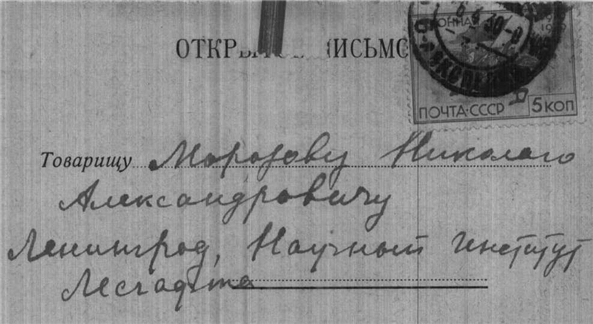 ОТКРЫТОЕ ПИСЬМО
ПОЧТА·СССР 5 КОП
Товарищу Морозову Николаю
Александровичу
Ленинград, Научный институт
Лесгафта